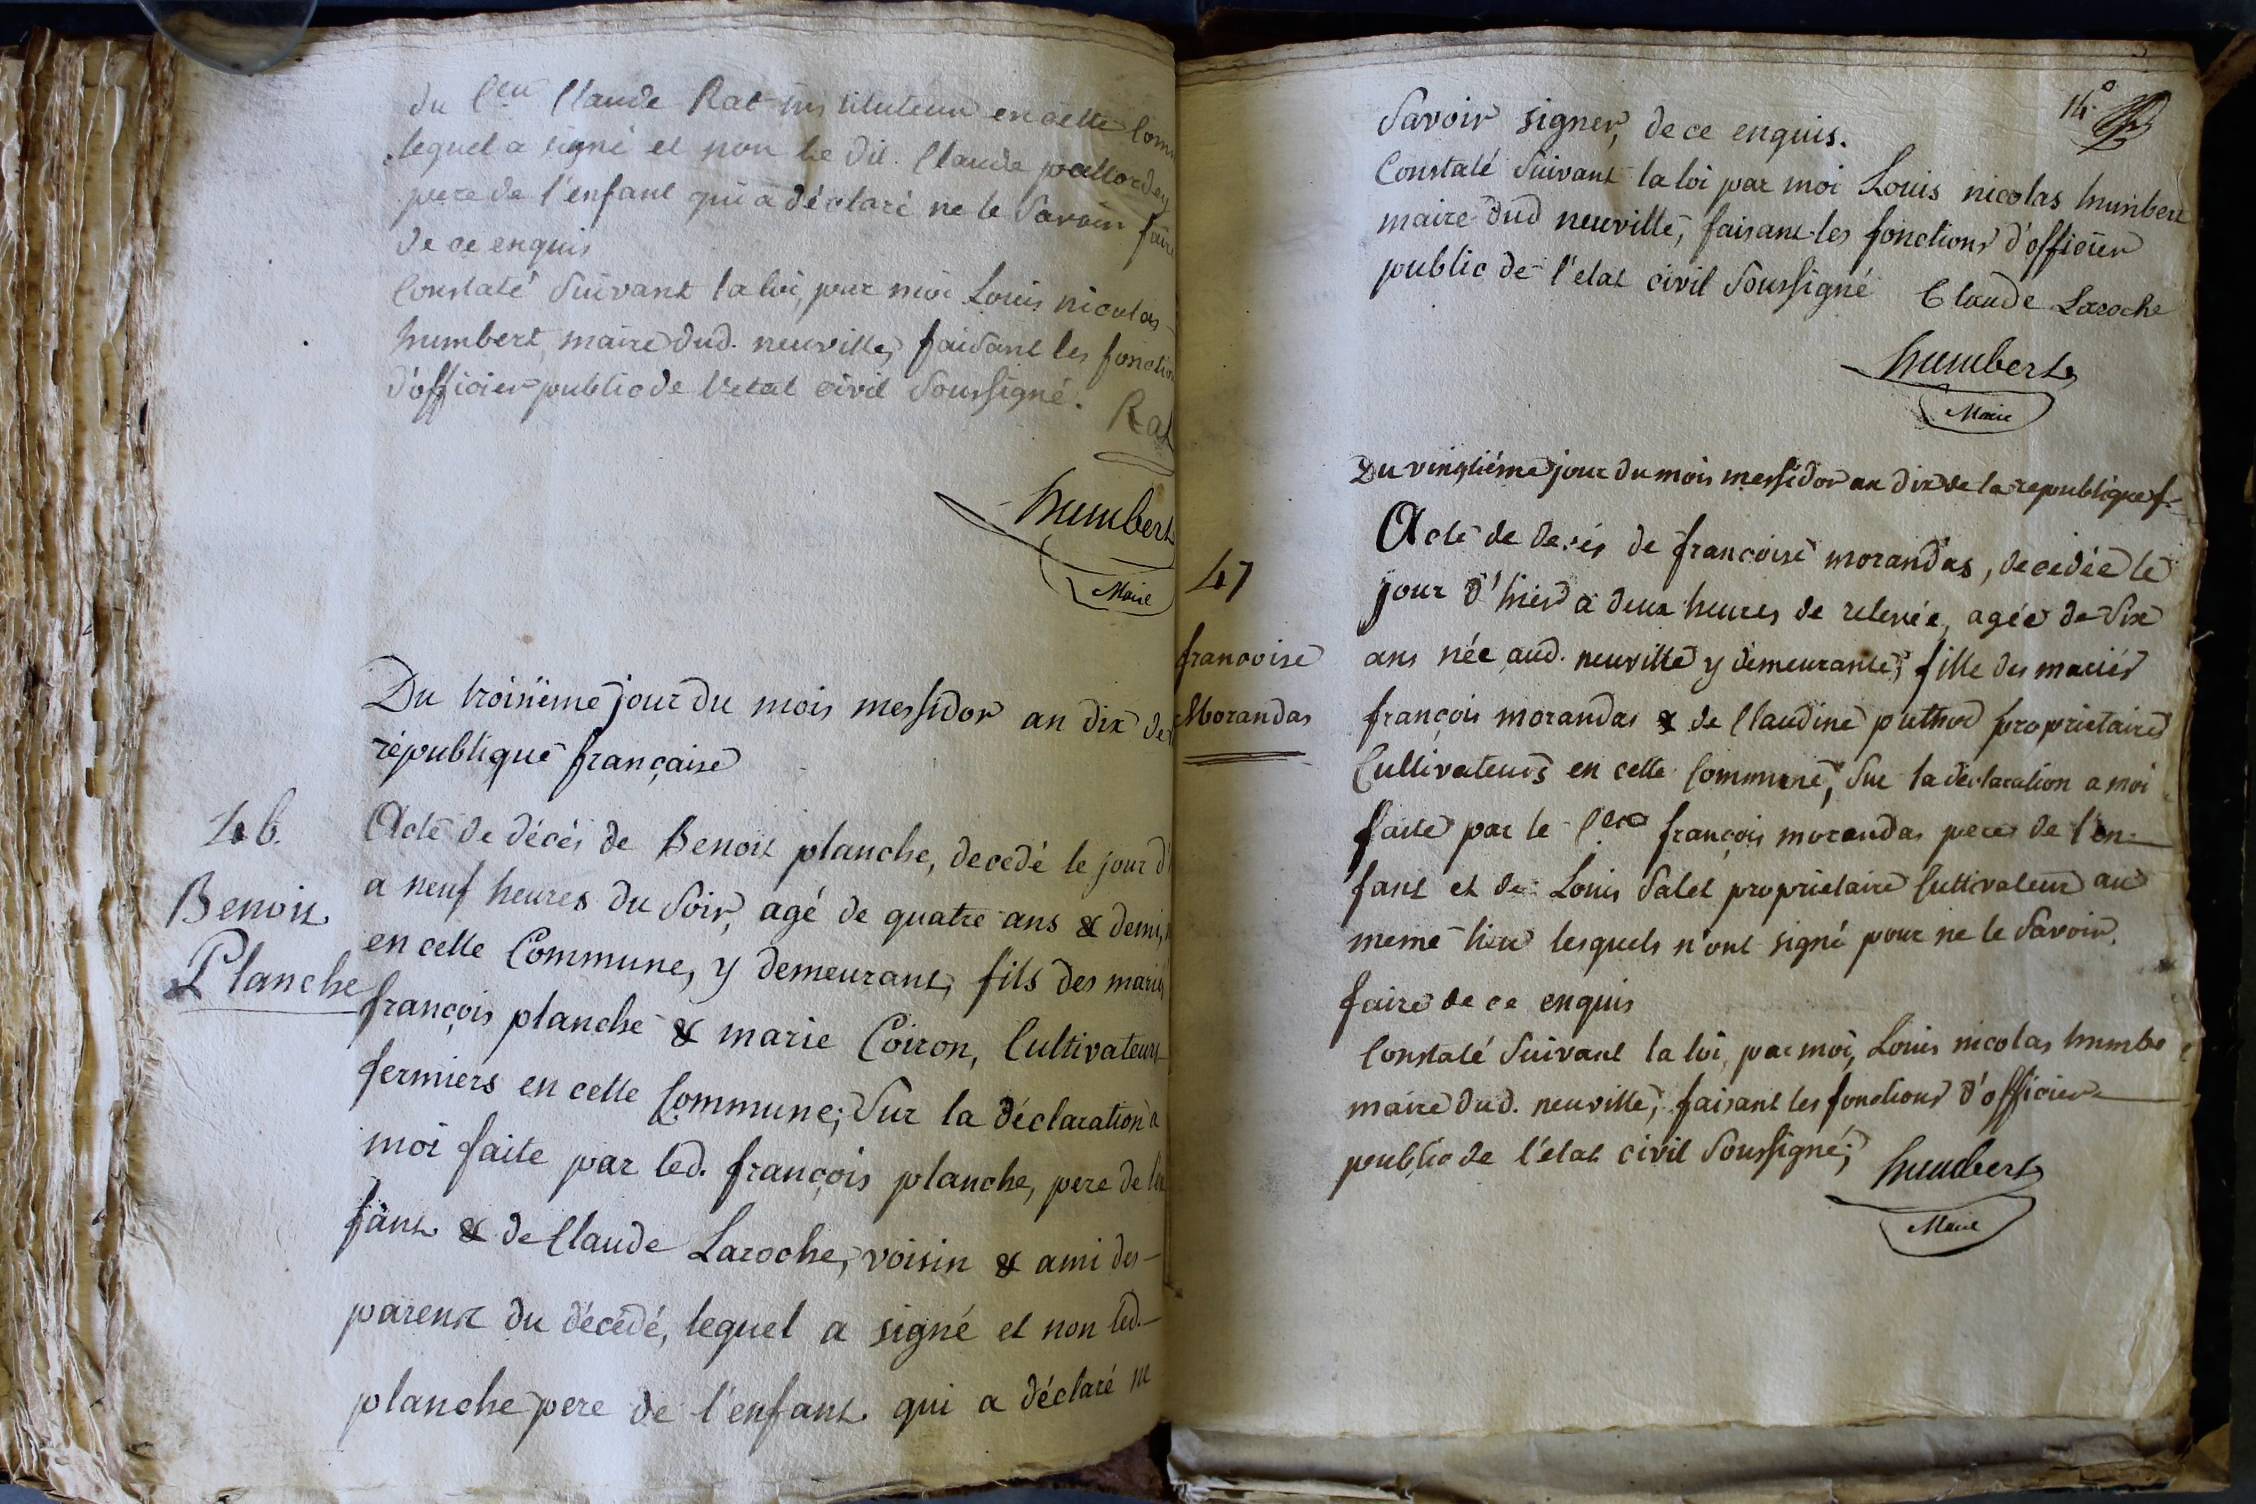 du Cen Claude Rat instituteur en cette Com
lequel a signé et non le dit Claude
pere de l'enfant qui a déclaré ne le savoir faire
de ce enquis
Constaté suivant la loi, par moi Louis nicolas
humbert, maire dud. neuville, faisant les fonction
d'officier public de l'etat civil soussigné.
Rat
humbert
Maire
Du troisiéme jour du mois messidor an dix de
république française
46.
Benoit
Planche
Acte de décés de Benoit planche, decedé le jour d'
a neuf heures du soir, agé de quatre ans & demi,
en cette Commune, y demeurant, fils des mariés
françois planche & marie Coiron, Cultivateurs
fermiers en cette Commune; sur la déclaration a
moi faite par led. françois planche, pere de l'en
fant & de Claude Laroche, voisin & ami des
parens du décédé, lequel a signé et non led.
planche pere de l'enfant qui a déclaré ne
14
savoir signer, de ce enquis.
Constaté suivant la loi par moi Louis nicolas humbert
maire dud neuville, faisant les fonctions d'officier
public de l'etat civil soussigné
Claude Laroche
humbert
Maire
Du vingtiéme jour du mois messidor an dix de la republique f.
47
francoise
Morandas
Acte de decés de francoise morandas, decedée le
jour d'hier a deux heures de relevée, agée de six
ans née aud. neuville y demeurante, fille des mariés
françois morandas & de Claudine puthod proprietaires
Cultivateurs en cette Commune, sur la déclaration a moi
faite par le Cen françois morandas pere de l'en-
fant et de Louis Salet proprietaire Cultivateur au
meme lieu lesquels n'ont signé pour ne le savoir
faire de ce enquis
Constaté suivant la loi, par moi, Louis nicolas humbe
maire dud. neuville, faisant les fonctions d'officier
public de l'état civil soussigné;
humbert
Maire